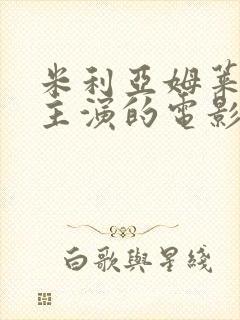 米利亞姆萊
主演的電影
白歌與星綫